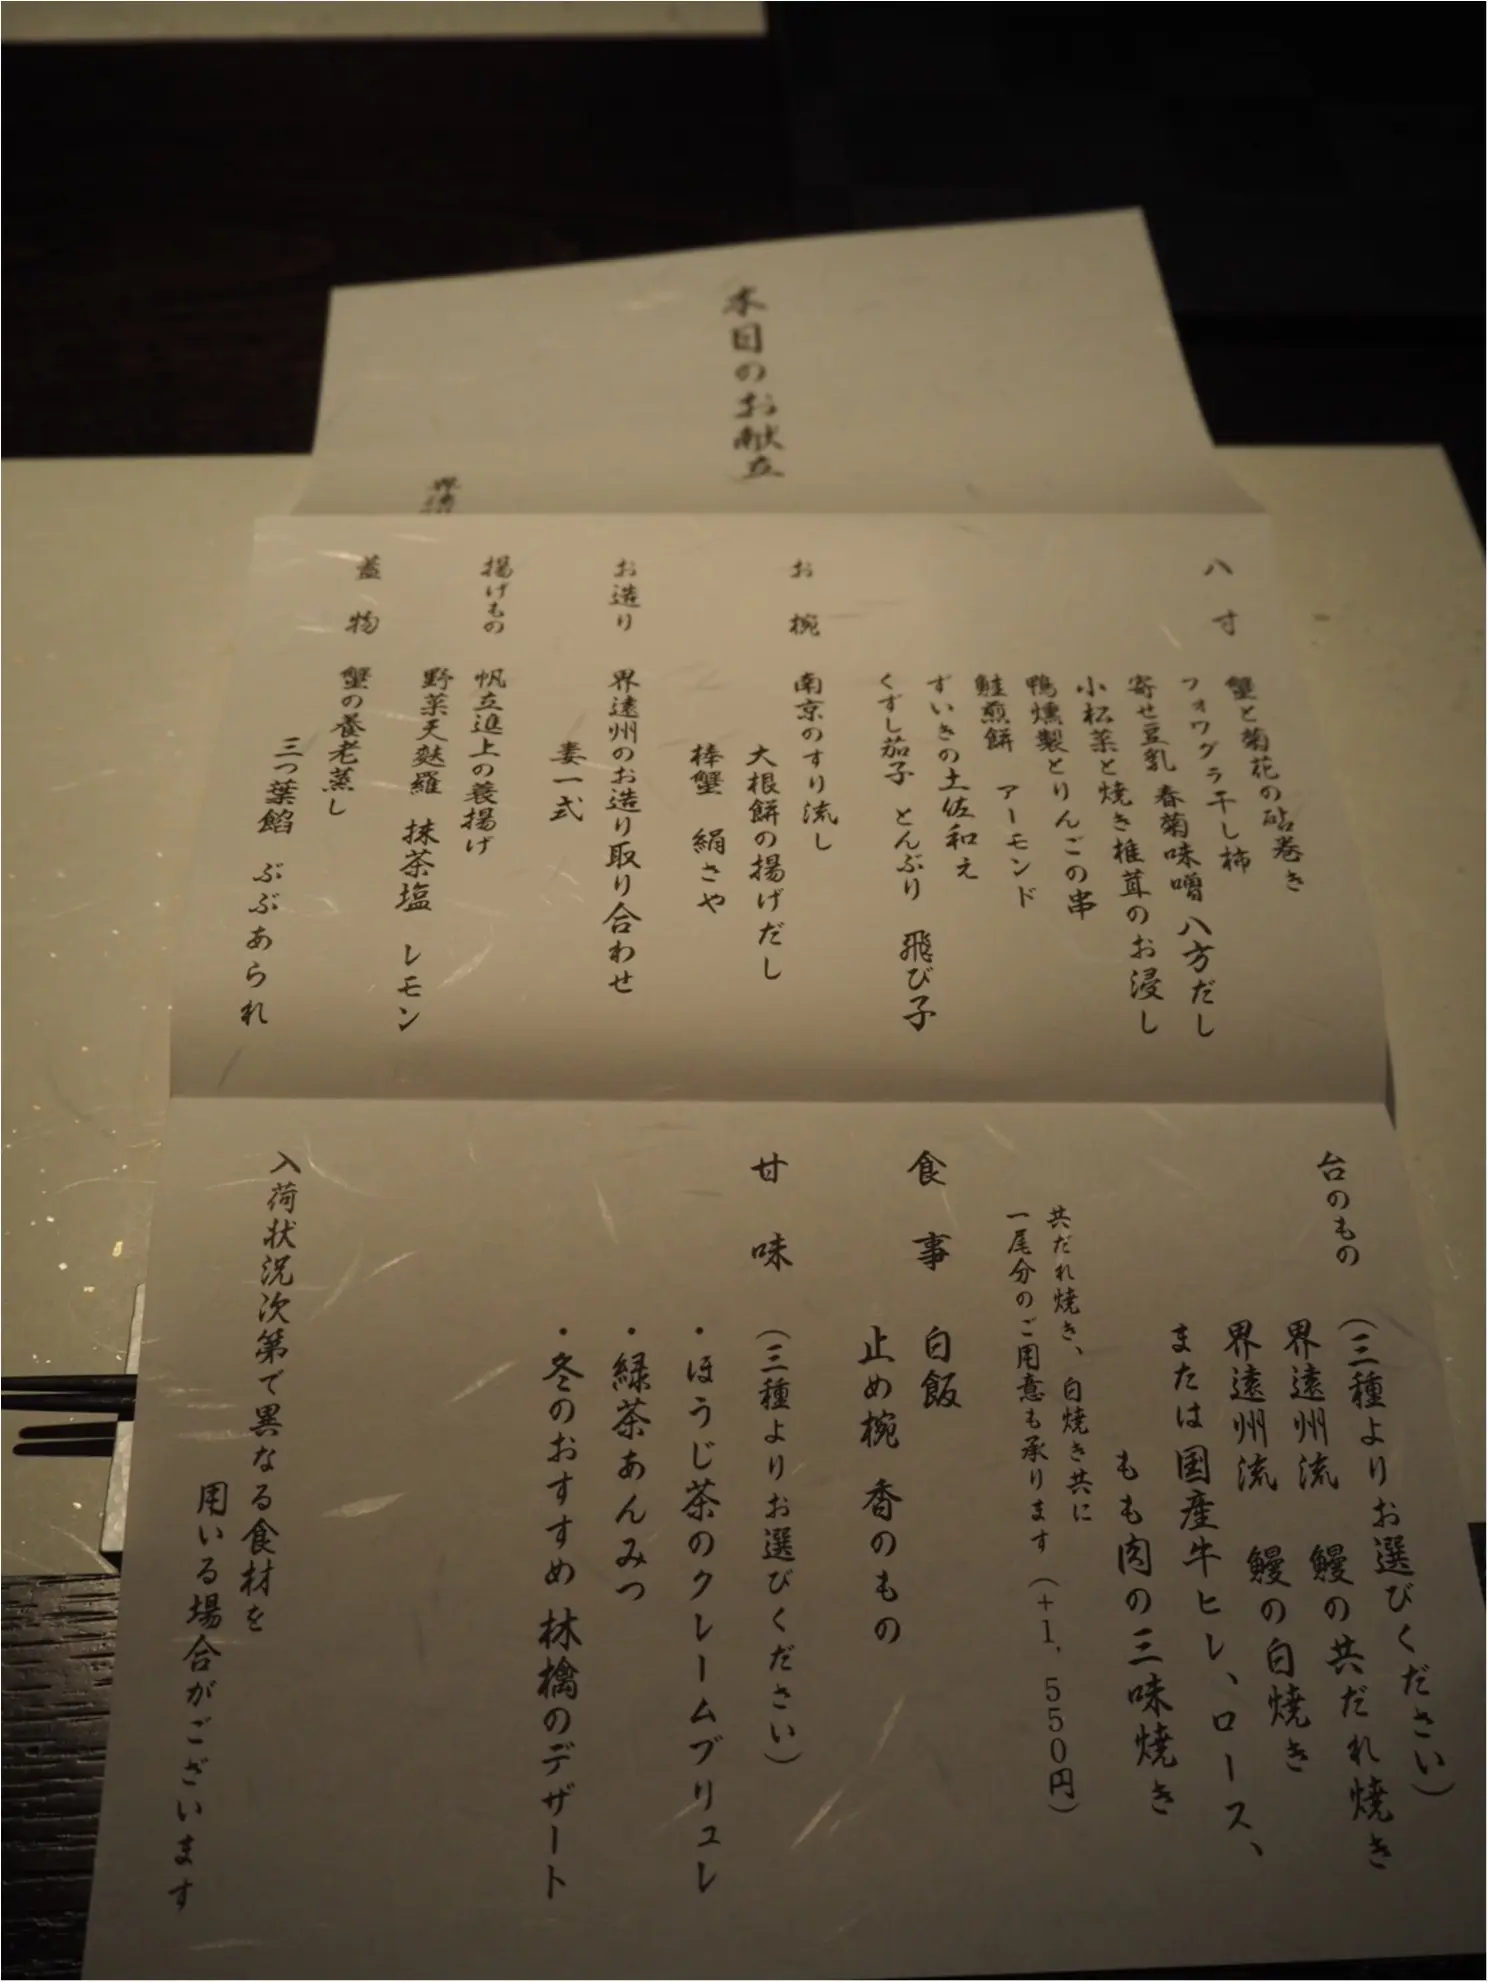 本日のお献立
界遠
八寸
蟹と菊花の砧巻き
フォワグラ干し柿
寄せ豆乳 春菊味噌 八方だし
小松菜と焼き椎茸のお浸し
鴨燻製とりんごの串
鮭煎餅 アーモンド
ずいきの土佐和え
くずし茄子 とんぶり 飛び子
お椀
南京のすり流し
大根餅の揚げだし
棒蟹 絹さや
お造り
界遠州のお造り取り合わせ
妻一式
揚げもの
帆立進上の蓑揚げ
野菜天麩羅 抹茶塩 レモン
蓋物
蟹の養老蒸し
三つ葉餡 ぶぶあられ
台のもの
(三種よりお選びください)
界遠州流 鰻の共だれ焼き
界遠州流 鰻の白焼き
または国産牛ヒレ、ロース、
もも肉の三味焼き
共だれ焼き、白焼き共に
一尾分のご用意も承ります (+1,550円)
食事
白飯
止め椀 香のもの
甘味
(三種よりお選びください)
・ほうじ茶のクレームブリュレ
・緑茶あんみつ
・冬のおすすめ 林檎のデザート
入荷状況次第で異なる食材を
用いる場合がございます